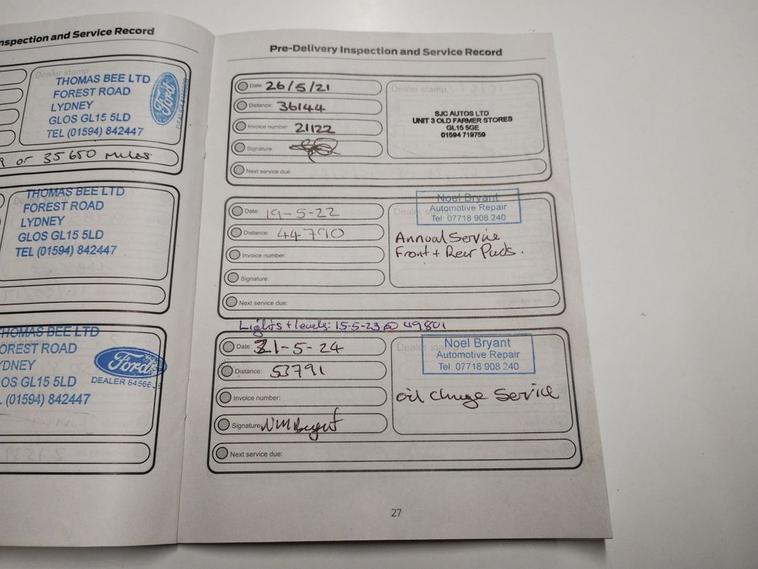 nspection and Service Record
THOMAS BEE LTD
FOREST ROAD
LYDNEY
GLOS GL15 5LD
TEL (01594) 842447
Ford
or 35650 miles
THOMAS BEE LTD
FOREST ROAD
LYDNEY
GLOS GL15 5LD
TEL (01594) 842447
HOMAS BEE LTD
OREST ROAD
YDNEY
OS GL15 5LD
(01594) 842447
Ford
DEALER
Pre-Delivery Inspection and Service Record
Date: 26/5/21
Distance: 36144
Invoice number: 21122
Signature:
Next service due:
Dealer stamp
SJC AUTOS LTD
UNIT 3 OLD FARMER STORES
GL15 5GE
01594 719759
Date: 19-5-22
Distance: 44790
Invoice number:
Signature:
Next service due:
Noel Bryant
Automotive Repair
Tel: 07718 908 240
Annual Service
Front + Rear Pads.
Lights + levels: 15-5-23 @ 49801
Date: 21-5-24
Distance: 53791
Invoice number:
Signature:
Next service due:
Noel Bryant
Automotive Repair
Tel: 07718 908 240
oil change Service
27